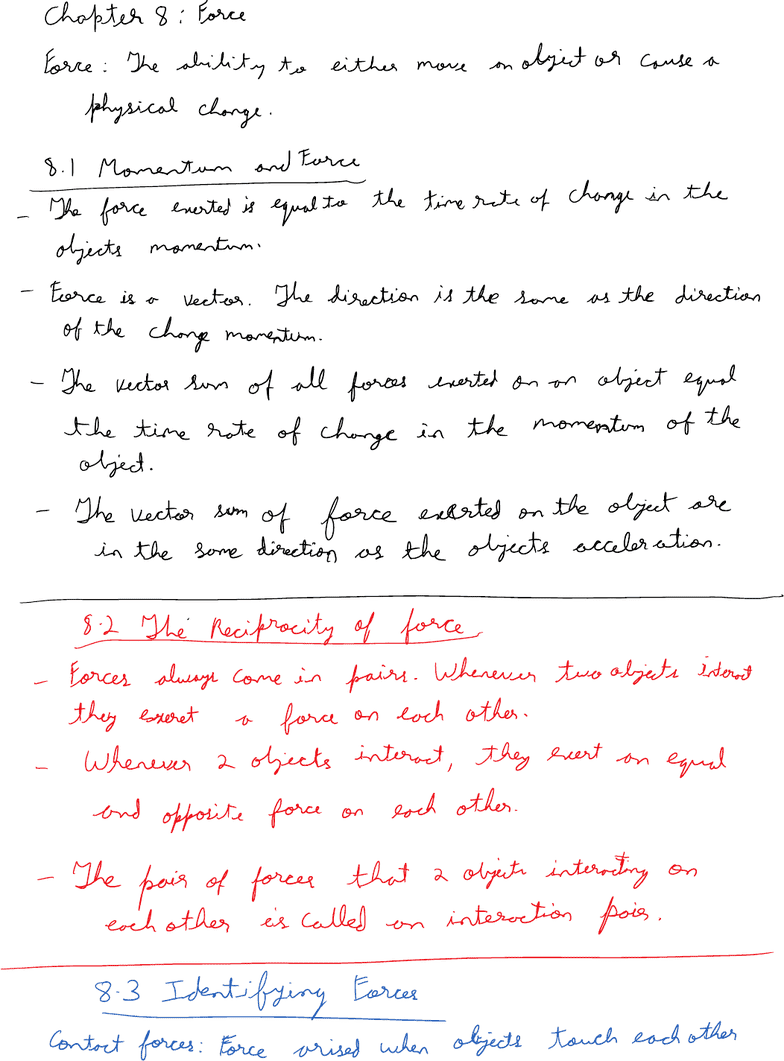 Chapter 8 : Force
Force : The ability to either move an object or cause a
physical change.
8.1 Momentum and Force
- The force exerted is equal to the time rate of change in the
objects momentum.
- Force is a vector. The direction is the same as the direction
of the change momentum.
- The vector sum of all forces exerted on an object equal
the time rate of change in the momentum of the
object.
- The vector sum of force exerted on the object are
in the same direction as the objects acceleration.
8.2 The Reciprocity of force
- Forces always come in pairs. Whenever two objects interact
they exeret a force on each other.
- Whenever 2 objects interact, they exert an equal
and opposite force on each other.
- The pair of forces that 2 objects interacting on
each other is called an interaction pair.
8.3 Identifying Forces
Contact forces: Force arised when objects touch each other